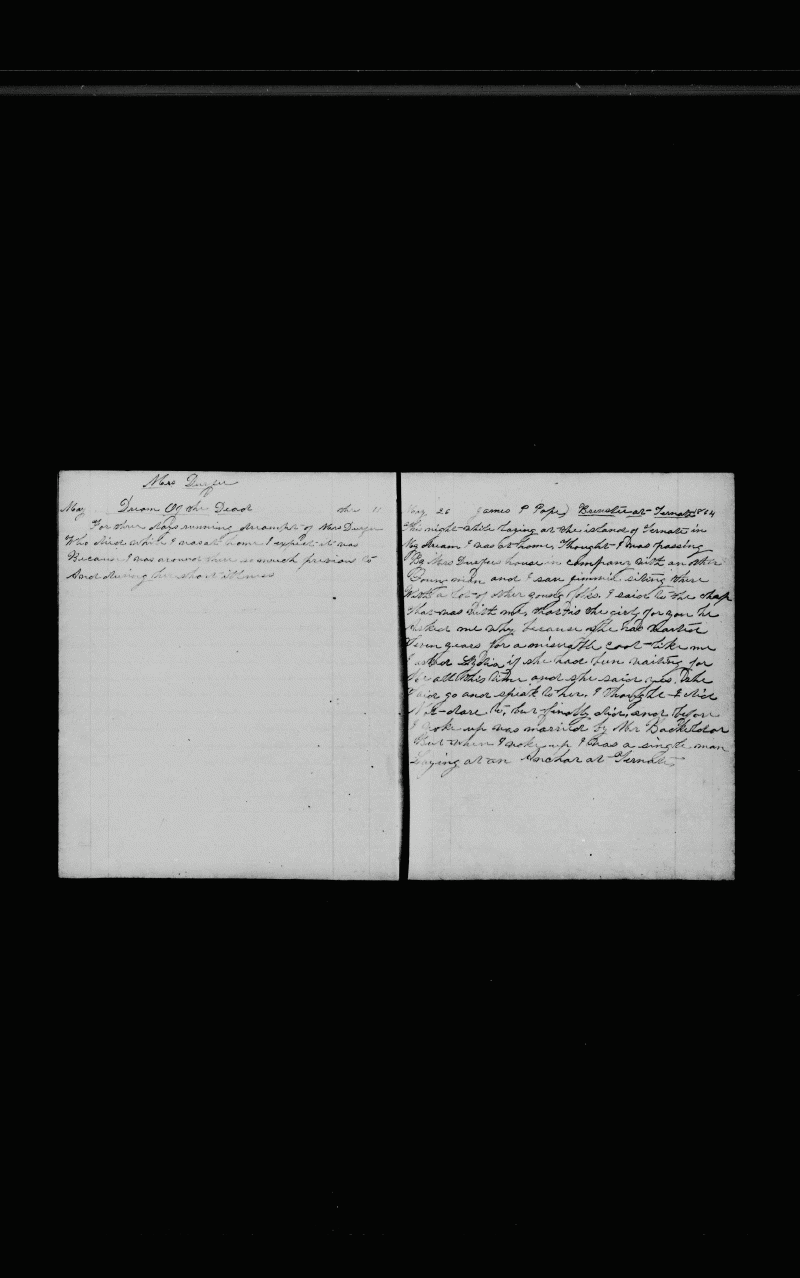 Mrs Durfee
May Dream Of the Dead the 11
For three days running dreampt of Mrs Durfee
Who died while I was at home I expect it was
Because I was around there so much previous to
And during her short illness
May 26 James P Pope Ternate 1864
This night while laying at the island of Ternate in
My dream I was at home, Thought I was passing
By Mrs Durfees house in company with an other
Young man and I saw siting there
With a lot of other young folks. I said to the chap
That was with me, that is the girl for you he
Asked me why because she has waited
Seven years for a miserable coot like me
I asked Lydia if she had bin waiting for
for all this time and she said yes. She
Said go and speak to her, I thought I did
Not dare to, but finally did, and before
I woke up was married by Mr Bachelder
But when I woke up I was a single man
Laying at an Anchar at Ternate